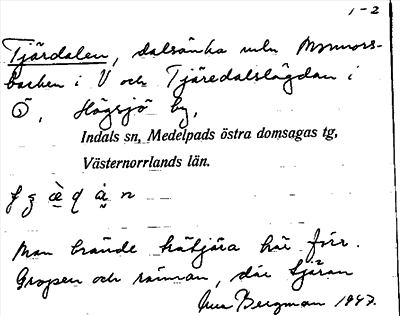 1-2
Tjärdalen, dalsänka mln Mormors-
backen i V och Tjäredalslägdan i
Ö, Högsjö by,
Indals sn, Medelpads östra domsagas tg,
Västernorrlands län.
Man brände här förr.
Gropen och rännan, där tjäran
Bergman 1947.